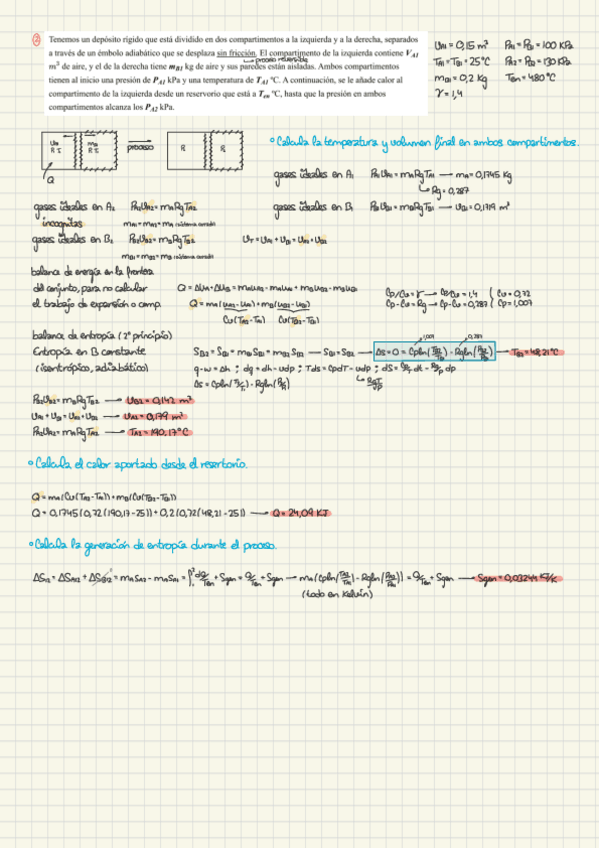 ② Tenemos un depósito rígido que está dividido en dos compartimentos a la izquierda y a la derecha, separados
a través de un émbolo adiabático que se desplaza sin fricción. El compartimento de la izquierda contiene V_A1
proceso reversible
m³ de aire, y el de la derecha tiene m_B1 kg de aire y sus paredes están aisladas. Ambos compartimentos
tienen al inicio una presión de P_A1 kPa y una temperatura de T_A1 °C. A continuación, se le añade calor al
compartimento de la izquierda desde un reservorio que está a T_en °C, hasta que la presión en ambos
compartimentos alcanza los P_A2 kPa.
V_A1 = 0,15 m³ P_A1 = P_B1 = 100 KPa
T_A1 = T_B1 = 25°C P_A2 = P_B2 = 130 KPa
m_B1 = 0,2 Kg T_en = 480°C
γ = 1,4
proceso
Q
• Calcula la temperatura y volumen final en ambos compartimentos.
gases ideales en A₁ P_A1 V_A1 = m_A Rg T_A1 → m_A = 0,1745 Kg
Rg = 0,287
gases ideales en A₂ P_A2 V_A2 = m_A Rg T_A2
gases ideales en B₁ P_B1 V_B1 = m_B Rg T_B1 → V_B1 = 0,1719 m³
incognitas m_A1 = m_A2 = m_A sistema cerrado
gases ideales en B₂ P_B2 V_B2 = m_B Rg T_B2 V_T = V_A1 + V_B1 = V_A2 + V_B2
m_B1 = m_B2 = m_B sistema cerrado
balance de energía en la frontera
del conjunto, para no calcular Q = ΔU_A + ΔU_B = m_A u_A2 - m_A u_A1 + m_B u_B2 - m_B u_B1
el trabajo de expansión o comp. Q = m_A (u_A2 - u_A1) + m_B (u_B2 - u_B1)
Cv(T_A2 - T_A1) Cv(T_B2 - T_B1)
Cp/Cv = γ → Cp/Cv = 1,4 { Cv = 0,72
Cp - Cv = Rg → Cp - Cv = 0,287 { Cp = 1,007
balance de entropía (2º principio)
1,007 0,287
Entropía en B constante S_B2 = S_B1 = m_B1 S_B1 = m_B2 S_B2 → S_B1 = S_B2 → Δs = 0 = Cp ln(T_B2/T_B1) - Rg ln(P_B2/P_B1) → T_B2 = 48,21°C
(isentrópico, adiabático) q - w = Δh ; dq = dh - vdp ; Tds = CpdT - vdp ; dS = Cp/T dt - Rg/p dp
Δs = Cp ln(T₂/T₁) - Rg ln(P₂/P₁)
P_B2 V_B2 = m_B Rg T_B2 → V_B2 = 0,142 m³
V_A1 + V_B1 = V_A2 + V_B2 → V_A2 = 0,179 m³
P_A2 V_A2 = m_A Rg T_A2 → T_A2 = 190,17°C
• Calcula el calor aportado desde el reservorio.
Q = m_A (Cv(T_A2 - T_A1)) + m_B (Cv(T_B2 - T_B1))
Q = 0,1745 (0,72 (190,17 - 25)) + 0,2 (0,72 (48,21 - 25)) → Q = 24,09 KJ
• Calcula la generación de entropía durante el proceso.
ΔS₁₂ = ΔS_A12 + ΔS_B12 = m_A S_A2 - m_A S_A1 = ∫₁² dQ/T_en + Sgen = Q/T_en + Sgen → m_A (Cp ln(T_A2/T_A1) - Rg ln(P_A2/P_A1)) = Q/T_en + Sgen → Sgen = 0,03244 KJ/K
(todo en Kelvin)